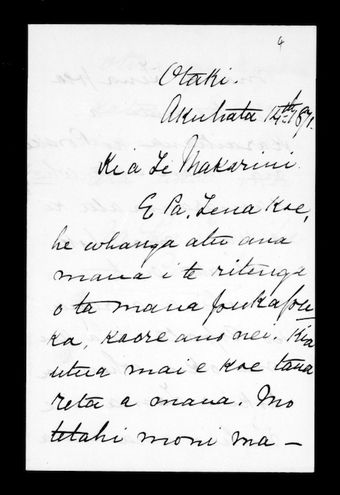 4
Otaki.
Akuhata 14th 1871.
Kia Te Makarini.
E Pa, Tena koe,
he whanga atu ana
maua i te ritenga
o ta maua pukapu
ka, kaore ano nei. Kia
utua mai e koe taua
reta a maua. Mo
tetahi moni ma –